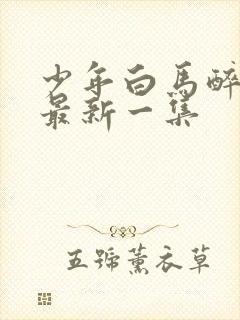 少年白馬醉
最新一集
五號薰衣草